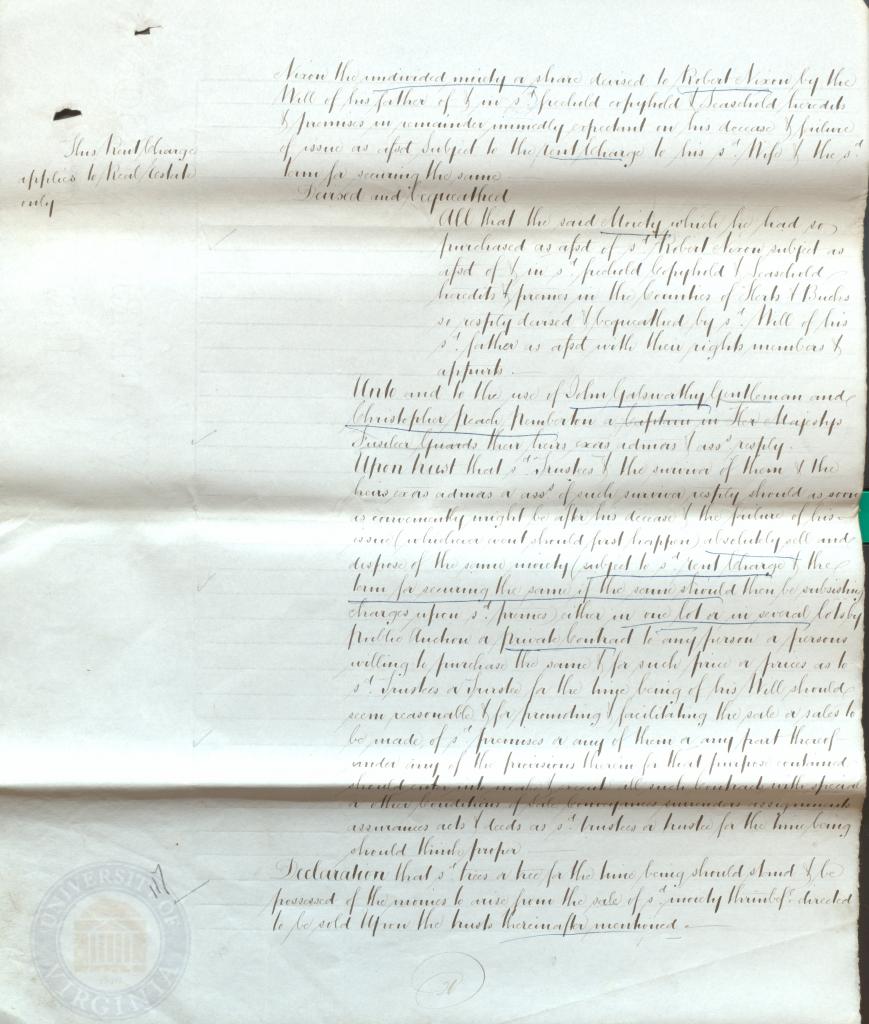 Nixon the undivided moiety or share devised to Robert Nixon by the
Will of his father of & in sd. freehold copyhold & Leasehold heredits
& premises in remainder immedly expectant on his decease & failure
of issue as afsd subject to the rent Charge to his sd. Wife & the sd.
term for securing the same
This Rent Charge
applies to Real Estate
only
Devised and bequeathed
All that the said Moiety which he had so
purchased as afsd of sd. Robert Nixon subject as
afsd of & in sd. freehold Copyhold & Leasehold
heredits & premes in the Counties of Herts & Bucks
so resply devised & bequeathed by sd. Will of his
sd. father as afsd with their rights members &
appurts.
Unto and to the use of John Galsworthy Gentleman and
Christopher Peach Pemberton a Captain in Her Majestys
Fusileer Guards their heirs exors admors & asss. resply.
Upon trust that sd. Trustees & the survivor of them & the
heirs exors admors or asss. of such survivor resply should as soon
as conveniently might be after his decease & the failure of his
issue (whichever event should first happen) absolutely sell and
dispose of the same moiety (subject to sd. rent Charge & the
term for securing the same if the same should then be subsisting
charges upon sd. premes) either in one lot or in several lots by
Public Auction or private Contract to any person or persons
willing to purchase the same & for such price or prices as to
sd. Trustees or Trustee for the time being of his Will should
seem reasonable & for promoting & facilitating the sale or sales to
be made of sd. premises or any of them or any part thereof
under any of the provisions therein for that purpose contained
should enter into make & execute all such Contracts with special
or other Conditions of Sale Conveyances surrenders assignments
assurances acts & deeds as sd. trustees or trustee for the time being
should think proper
Declaration that sd. trees or tree for the time being should stand & be
possessed of the monies to arise from the sale of sd. moiety thrinbefe. directed
to be sold Upon the trusts thereinafter mentioned.
UNIVERSITY OF
VIRGINIA